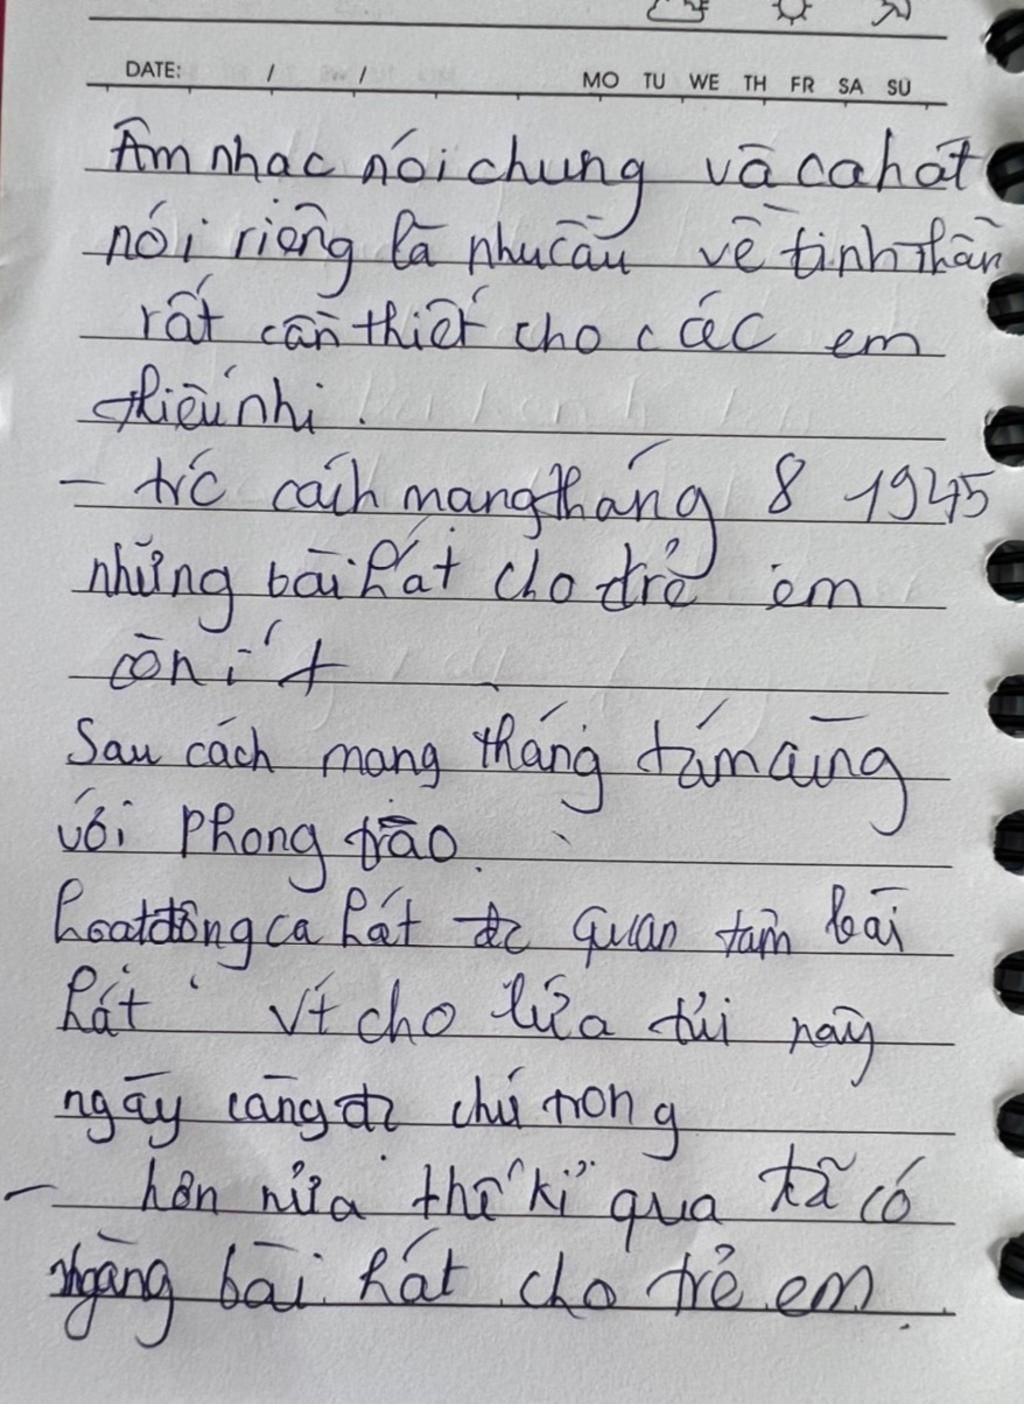 DATE: / / MO TU WE TH FR SA SU
Âm nhạc nói chung và ca hát
nói riêng là nhu cầu về tinh thần
rất cần thiết cho các em
thiếu nhi.
- trc cách mạng tháng 8 1945
những bài hát cho trẻ em
còn ít
Sau cách mạng tháng tám cùng
với phong trào.
hoạt động ca hát đc quan tâm bài
hát vt cho lứa tủi này
ngày càng đc chú trọng
- hơn nửa thế kỉ qua đã có
ngàng bài hát cho trẻ em.